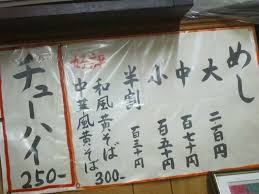 めし
大 二百円
中 百七十円
小 百五十円
半割 百三十円
好評
和風黄そば
中華風黄そば
300-
チューハイ
250-